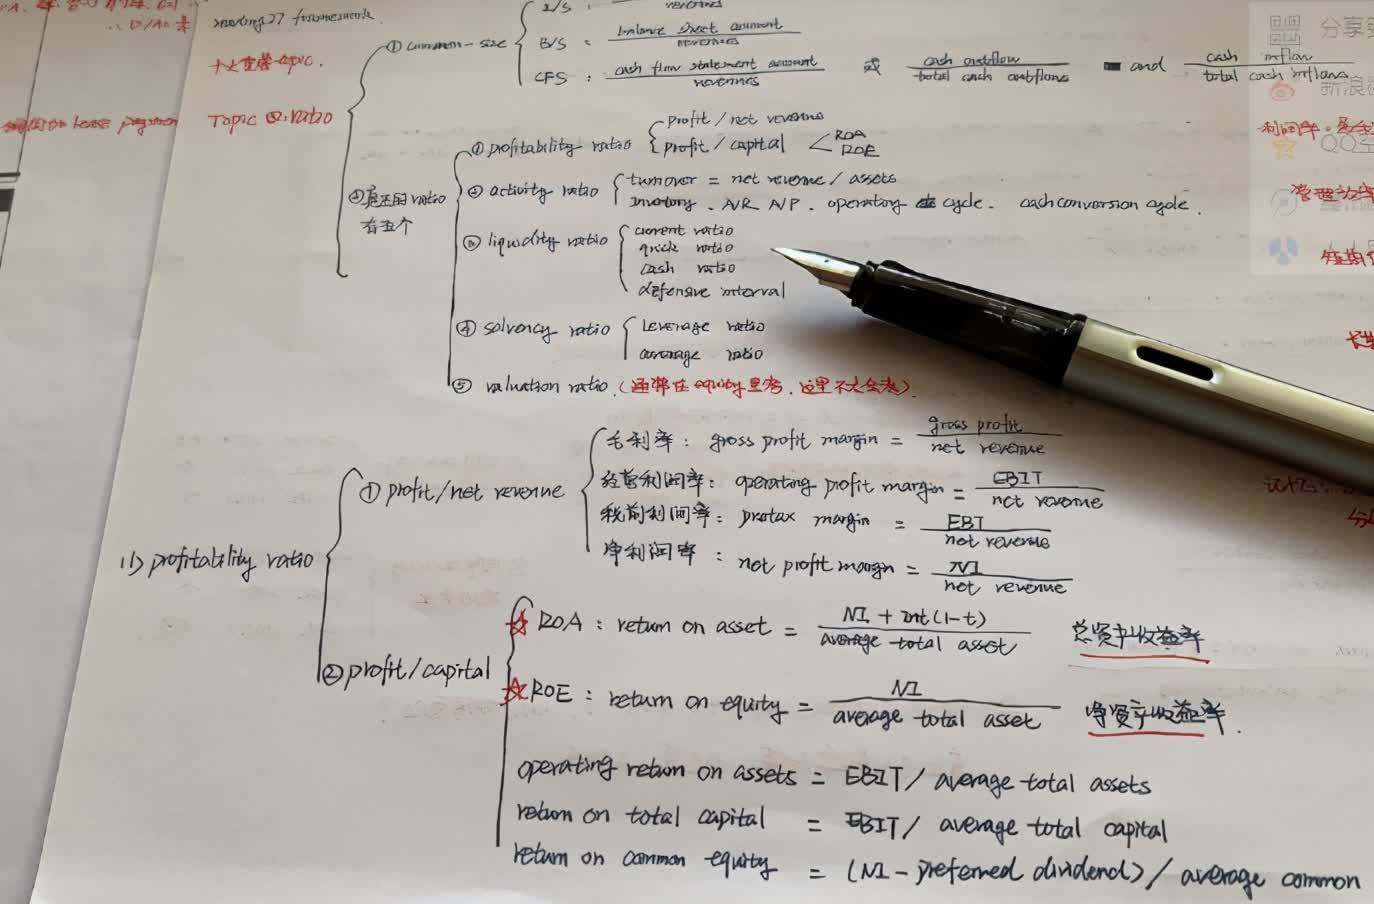 ∴ D/A
reading 27 framework.
十大重磅topic.
Topic 四: ratio
① common-size
I/S : revenues
B/S : balance sheet account / revenues
CFS : cash flow statement account / revenues 或 cash outflow / total cash outflows and cash inflow / total cash inflows
lease payment
② 真正的ratio 有五个
① profitability ratio
profit / net revenue
profit / capital
ROA
ROE
② activity ratio
turnover = net revenue / assets
Inventory . A/R A/P . operating cycle . cash conversion cycle .
③ liquidity ratio
current ratio
quick ratio
cash ratio
defensive interval
④ solvency ratio
leverage ratio
coverage ratio
⑤ valuation ratio. (通常在equity里考, 这里不大会考).
分享
新浪
QQ空
利润率.
管理效率
(1) profitability ratio
① profit/net revenue
毛利率 : gross profit margin = gross profit / net revenue
经营利润率 : operating profit margin = EBIT / net revenue
税前利润率 : pretax margin = EBT / net revenue
净利润率 : net profit margin = NI / net revenue
② profit/capital
☆ ROA : return on asset = NI + Int(1-t) / average total asset 总资产收益率
☆ ROE : return on equity = NI / average total asset 净资产收益率.
operating return on assets = EBIT / average total assets
return on total capital = EBIT / average total capital
return on common equity = (NI - preferred dividend) / average common